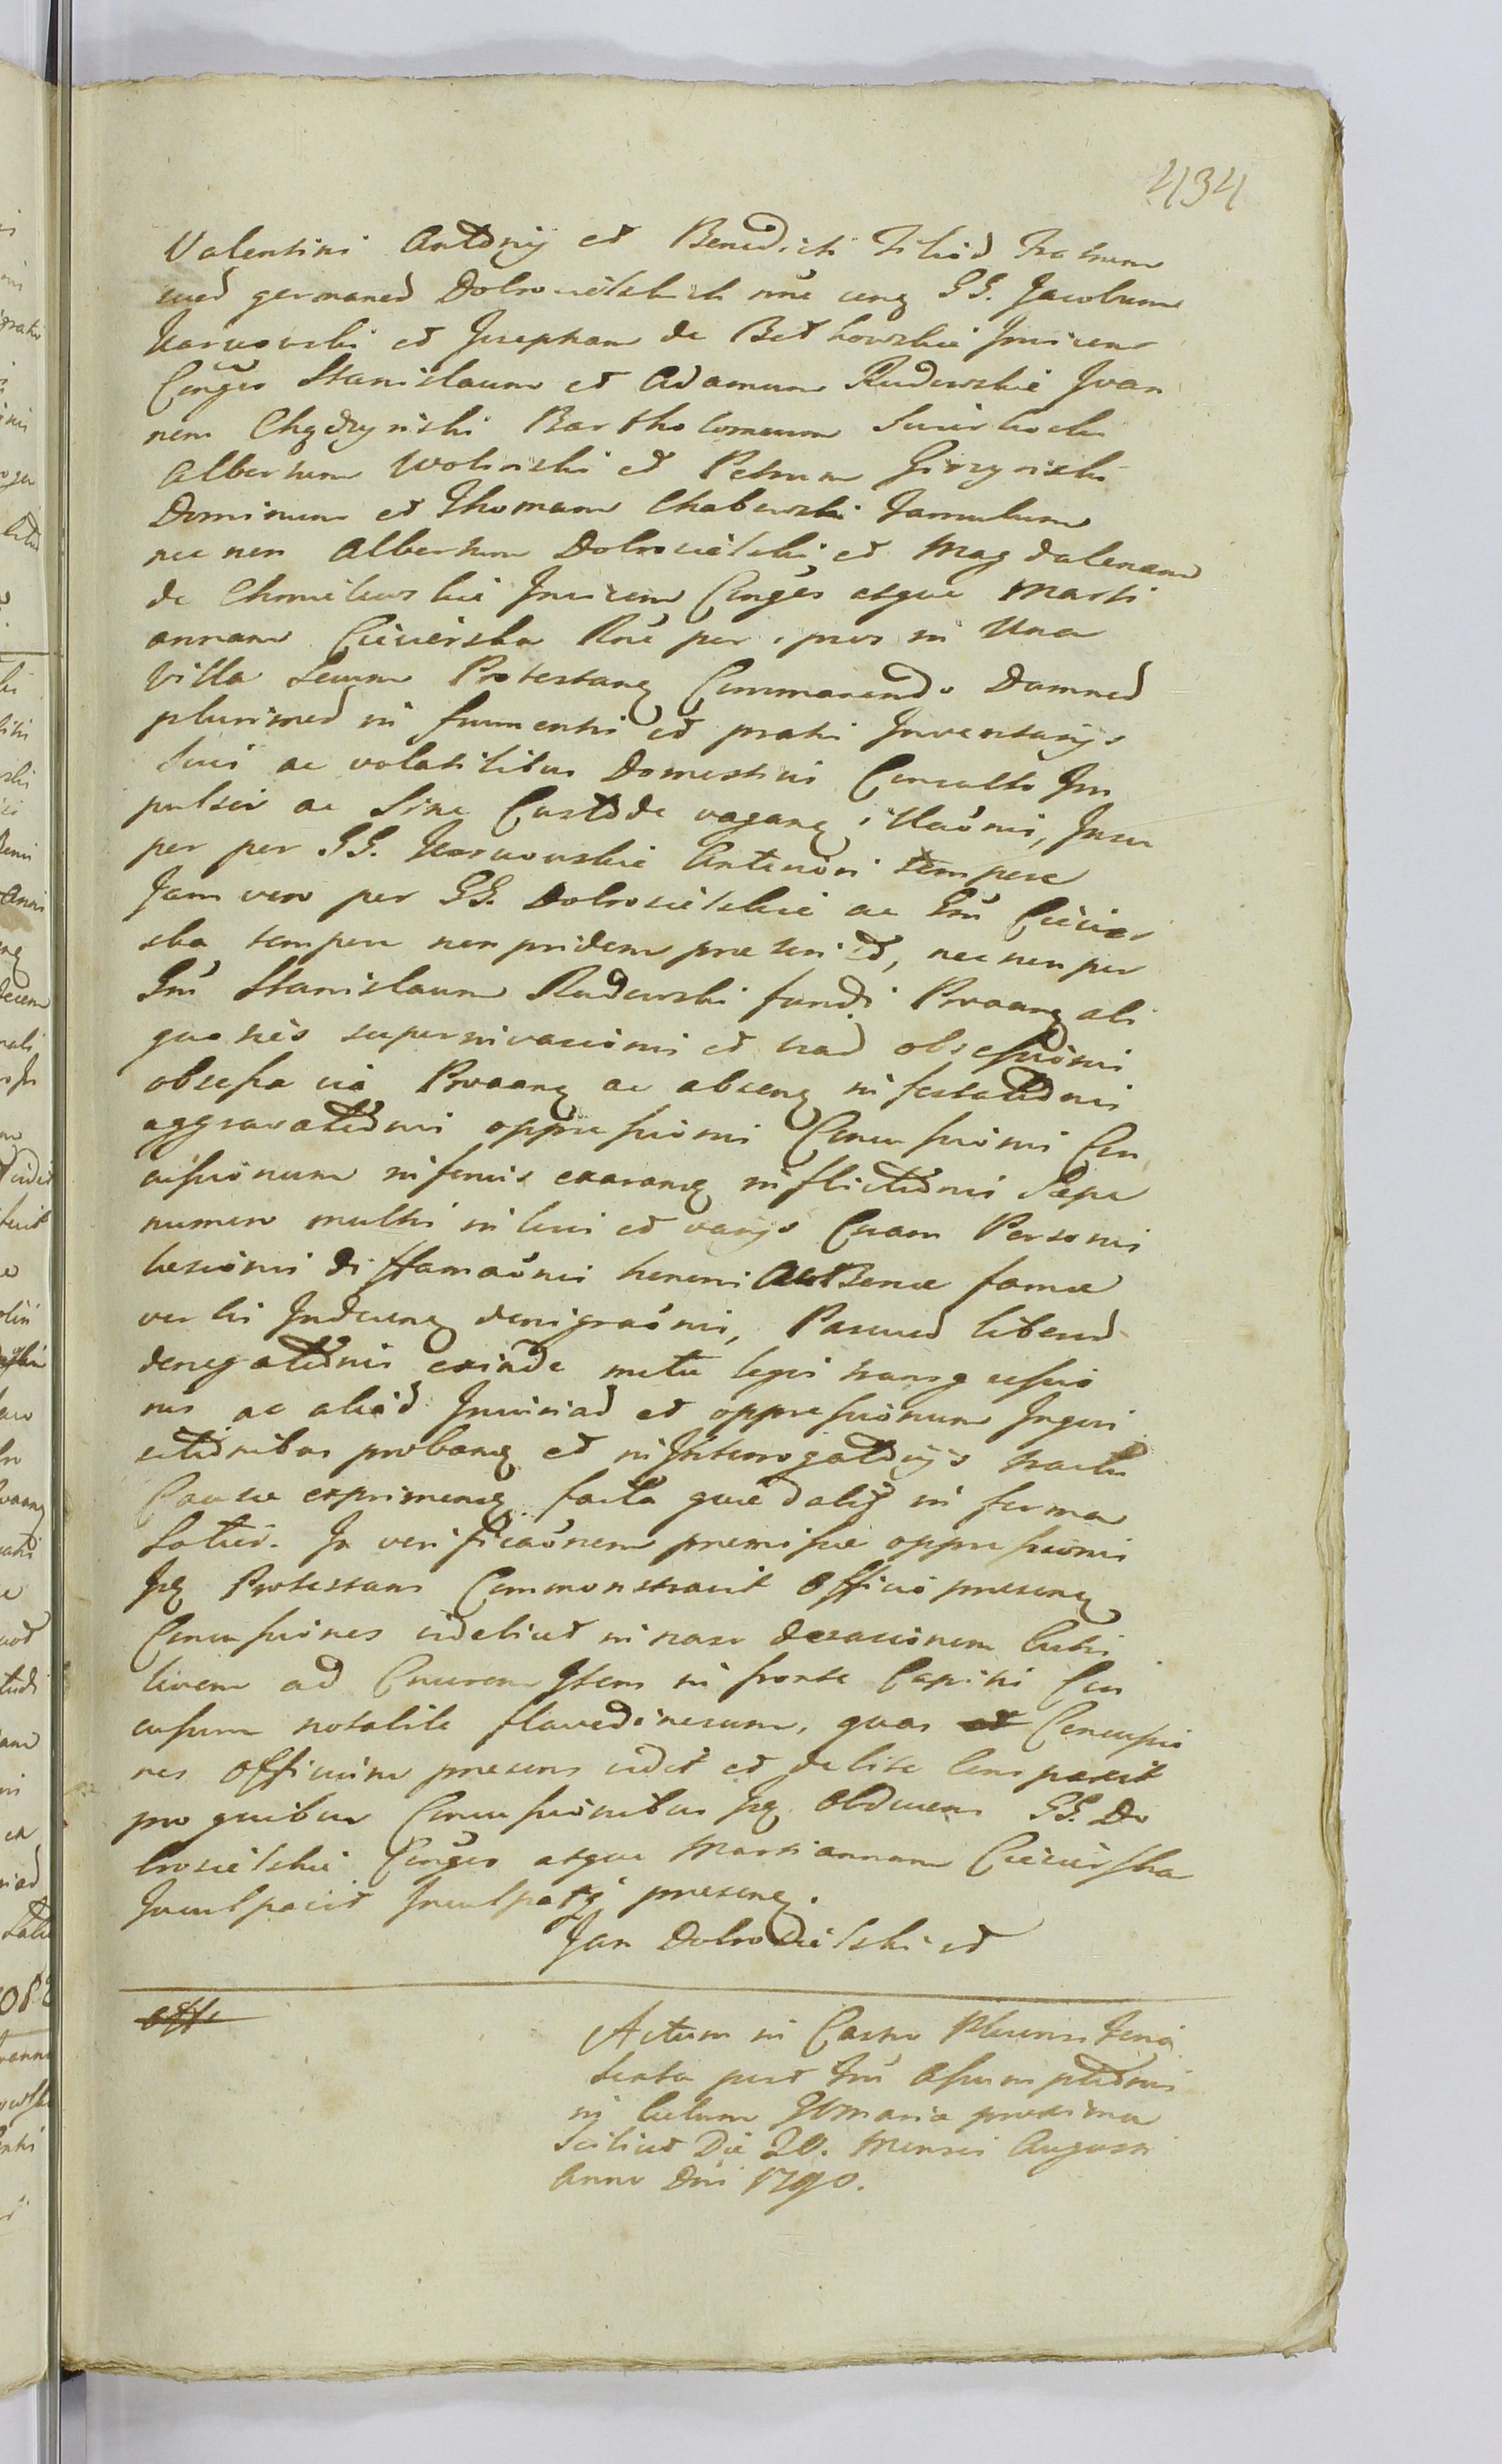 434
Valentini Antonij et Benedicti Filiod Fratrum
sued germaned Dobrosielskich nunc cenz GG. Jacobum
Karwowski et Josepham de Betkowskie Invicem
Conges Stanislaum et Adamum Rudowskie Joan
nem Chądzyński Bartholomeum Swierkocki
Albertum Woliński et Petrum Girzyński
Dominum et Thomam Chabowski Famulum
nec non Albertum Dobrosielski et Magdalenam
de Chmielewskie Invicem Conges atque Marti
annam Ciecierska Rne per ipsos in Una
Villa secum Protestanz Commorando Damned
plurimed in frumentis et pratis Inventarijs
suis ac volatilibus Domesticis Consulto Im
pulsis ac sine Custode vaganz illaonis, Insu
per per GG. Karwowskie Anteriori tempore
Jam vero per GG. Dobrosielskie ac Gm Ciecier
ska tempore non pridem praeterito, nec non per
Gm Stanislaum Rudowski fundi Prvaanz ali
quoties supernivasionis et viad obsessionis
obsessa via Prvaanz ac absenz infestationis
aggravationis oppressionis Concussionis Con
cussionum inferius exaranz inflictionis Saepe
numero multis in locis et varijs Coram Personis
lesionis diffamaonis honoris Bonae famae
verbis Indecenz denigraonis, Pascued libered
denegationis exinde metu legis transgressio
nis ac aliod Iniuriad et oppressionum Inqui
sitionibus probanz et in Interrogatorijs tractu
Causae exprimenz facta quaedaliz in forma
Satius. In verificaonem premissae oppressionis
Iz Protestans Commonstravit Officio presenz
Concussiones videlicet in naso decassionem Cutis
livem ad Cruorem Item in fronte Capitis Con
cussum notabile flavedinosum, quas Concussio
nes Officium presens vidit et de lise Conspexit
pro quibus Concussionibus Iz Obducens GG. Do
brosielskie Conges atque Martiannam Ciecierska
Inculpavit Inculpatz presenz.
Jan Dobrosielski
Actum in Castro Plocensi Feria
Sexta post Fm Assumptionis
in Coelum Maria proxima
Scilicet Die 20. Mensis Augusti
Anno Dni 1790.